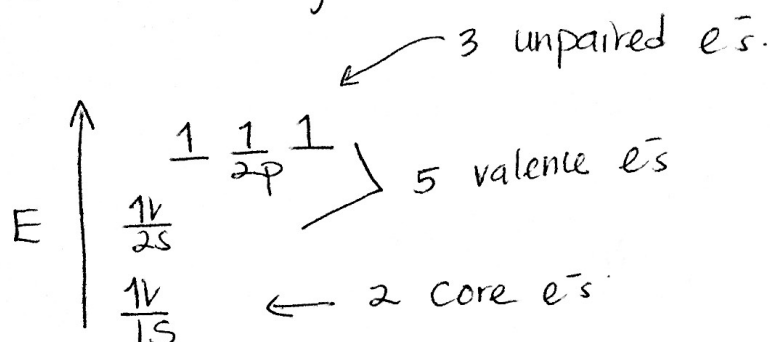 3 unpaired e⁻s.
1 1 1
2p
5 valence e⁻s
E
1V
2S
1V
1S
2 core e⁻s